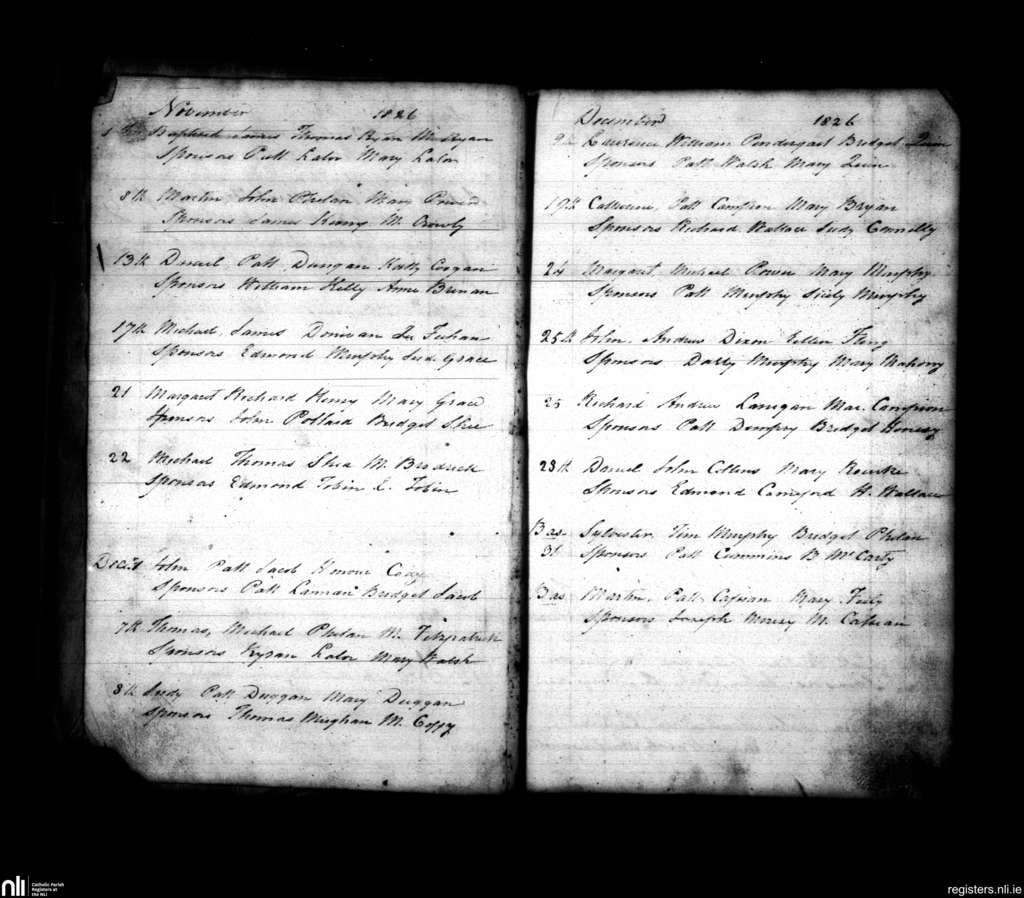 November 1826
Baptized James Thomas Ryan M. Ryan
Sponsors Patt Lalor Mary Lalor
8th Martin John Phelan Mary
Sponsors James Kenny M. Crowly
13th Daniel Patt Dungan Kitty Coogan
Sponsors William Kelly Anne Brenan
17th Michael James Donivan Feehan
Sponsors Edmond Murphy Jud. Grace
21 Margaret Richard Henry Mary Grace
Sponsors John Pollard Bridget Shee
22 Michael Thomas Shea M. Brodrick
Sponsors Edmond Tobin E. Tobin
Dec. John Patt Jacob Honour Cody
Sponsors Patt Lannan Bridget Jacob
7th Thomas, Michael Phelan M. Fitzpatrick
Sponsors Kyran Lalor Mary Walsh
8th Judy Patt Duggan Mary Duggan
Sponsors Thomas Meighan M.
December 1826
9 Laurence William Pendergast Bridget Quin
Sponsors Patt Walsh Mary Quin
19th Catherine, Patt Campion Mary Bryan
Sponsors Richard Wallace Judy Connolly
24 Margaret Michael Power Mary Murphy
Sponsors Patt Murphy Sicily Murphy
25th John, Andrew Dixon Ellen
Sponsors Datty Murphy Mary Mahony
25 Richard Andrew Lanigan Mar. Campion
Sponsors Patt Dempsy Bridget
28th Daniel John Collins Mary Rourke
Sponsors Edmond Comerford H. Wallace
Bas. Sylvester Tim Murphy Bridget Phelan
31 Sponsors Patt Cummins B McCarty
Bas Martin, Patt Mary
Sponsors Joseph M.
nli Catholic Parish
Registers at
the NLI
registers.nli.ie